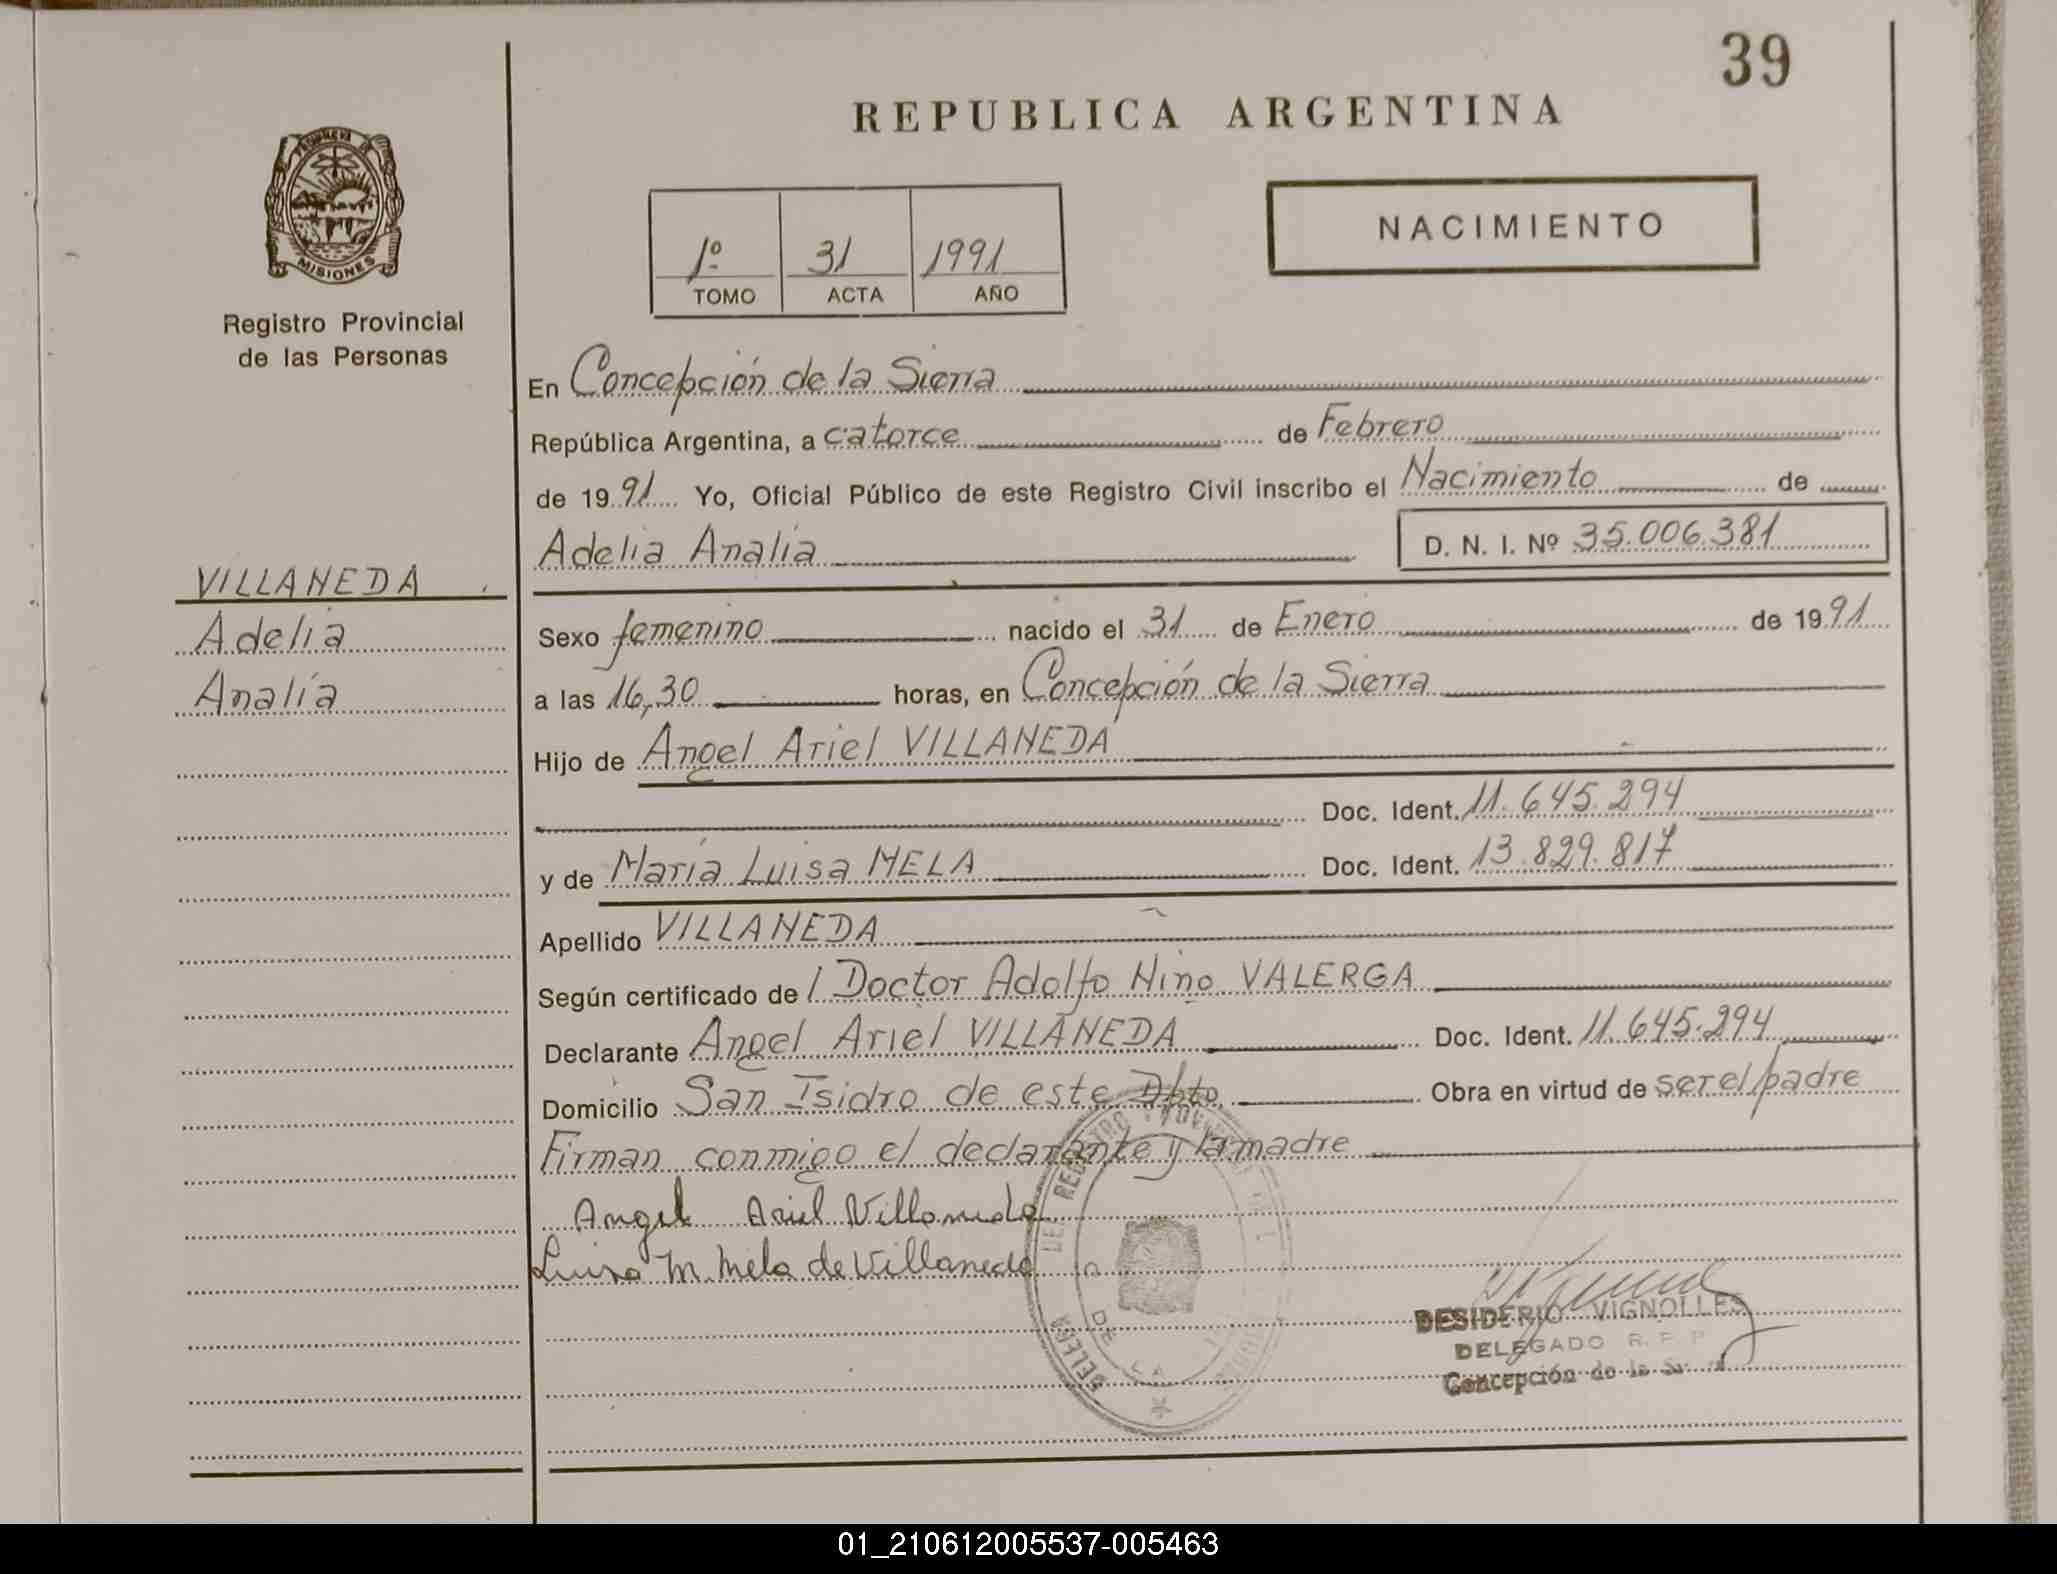 39
REPUBLICA ARGENTINA
MISIONES
Registro Provincial
de las Personas
1º 31 1991
TOMO ACTA AÑO
NACIMIENTO
En Concepción de la Sierra
República Argentina, a catorce de Febrero
de 1991 Yo, Oficial Público de este Registro Civil inscribo el Nacimiento de
Adelia Analía D. N. I. Nº 35.006.381
VILLANEDA
Adelia
Analía
Sexo femenino nacido el 31 de Enero de 1991
a las 16,30 horas, en Concepción de la Sierra
Hijo de Angel Ariel VILLANEDA
Doc. Ident. 11.645.294
y de María Luisa MELA Doc. Ident. 13.829.817
Apellido VILLANEDA
Según certificado de l Doctor Adolfo Nino VALERGA
Declarante Angel Ariel VILLANEDA Doc. Ident. 11.645.294
Domicilio San Isidro de este Dpto Obra en virtud de ser el padre
Firman conmigo el declarante y la madre
Angel Ariel Villaneda
Luisa M. Mela de Villaneda
DESIDERIO VIGNOLLES
DELEGADO R. P. P.
Concepción de la
01_210612005537-005463